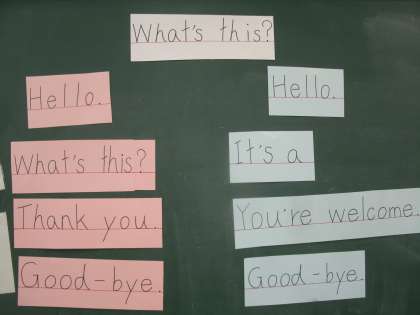 What's this?
Hello.
Hello.
What's this?
It's a
Thank you.
You're welcome.
Good-bye.
Good-bye.